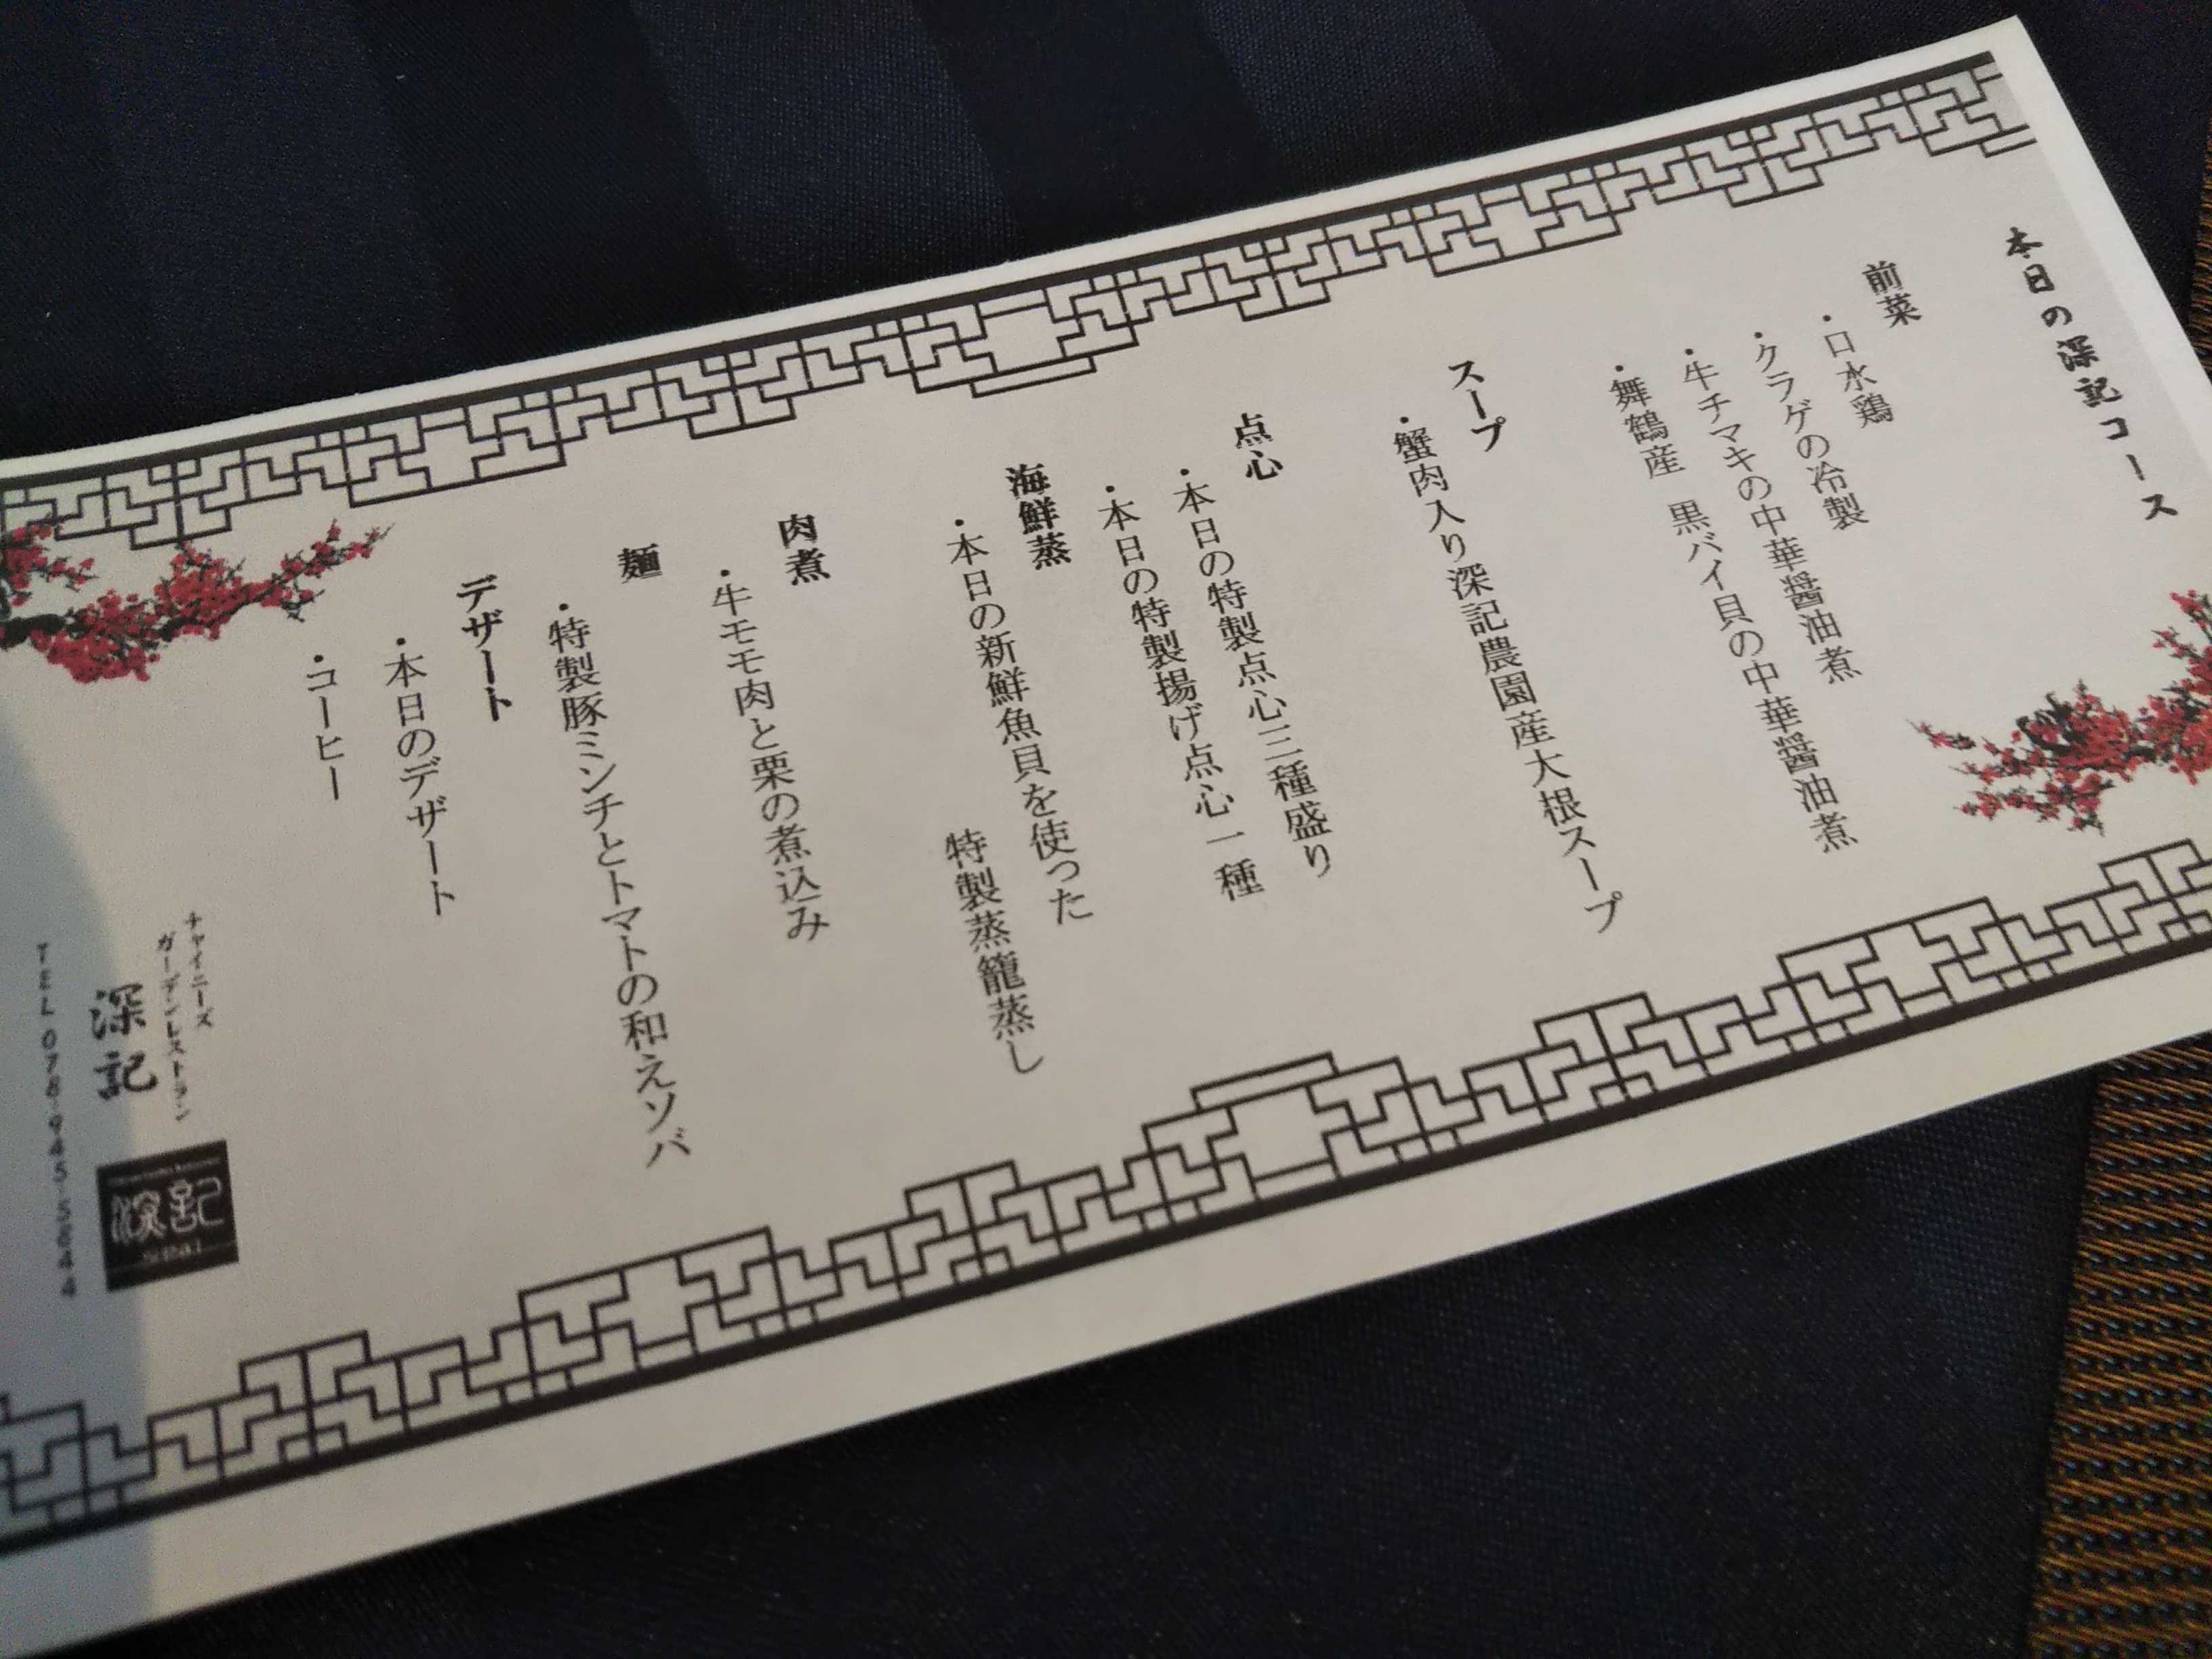 本日の深記コース
前菜
・口水鶏
・クラゲの冷製
・牛チマキの中華醤油煮
・舞鶴産　黒バイ貝の中華醤油煮
スープ
・蟹肉入り深記農園産大根スープ
点心
・本日の特製点心三種盛り
・本日の特製揚げ点心一種
海鮮蒸
・本日の新鮮魚貝を使った
特製蒸籠蒸し
肉煮
・牛モモ肉と栗の煮込み
麺
・特製豚ミンチとトマトの和えソバ
デザート
・本日のデザート
・コーヒー
チャイニーズ
ガーデンレストラン
深記
深記
TEL 078-945-5644